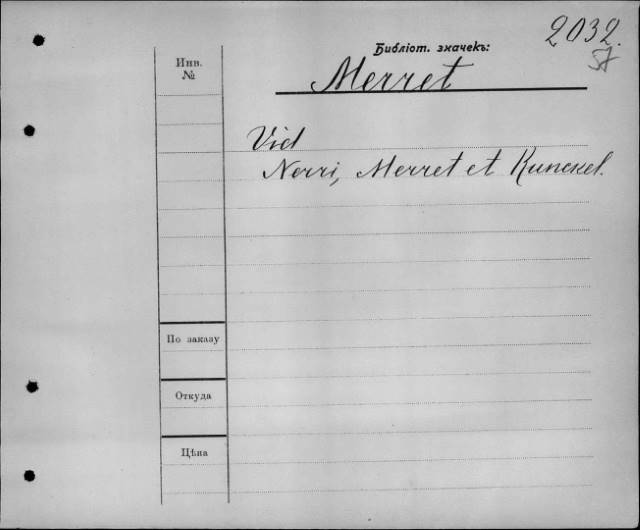 2032.
57
Библіот. значекъ:
Инв.
№
Merret
Vid
Nerri, Merret et Kunckel.
По заказу
Откуда
Цѣна